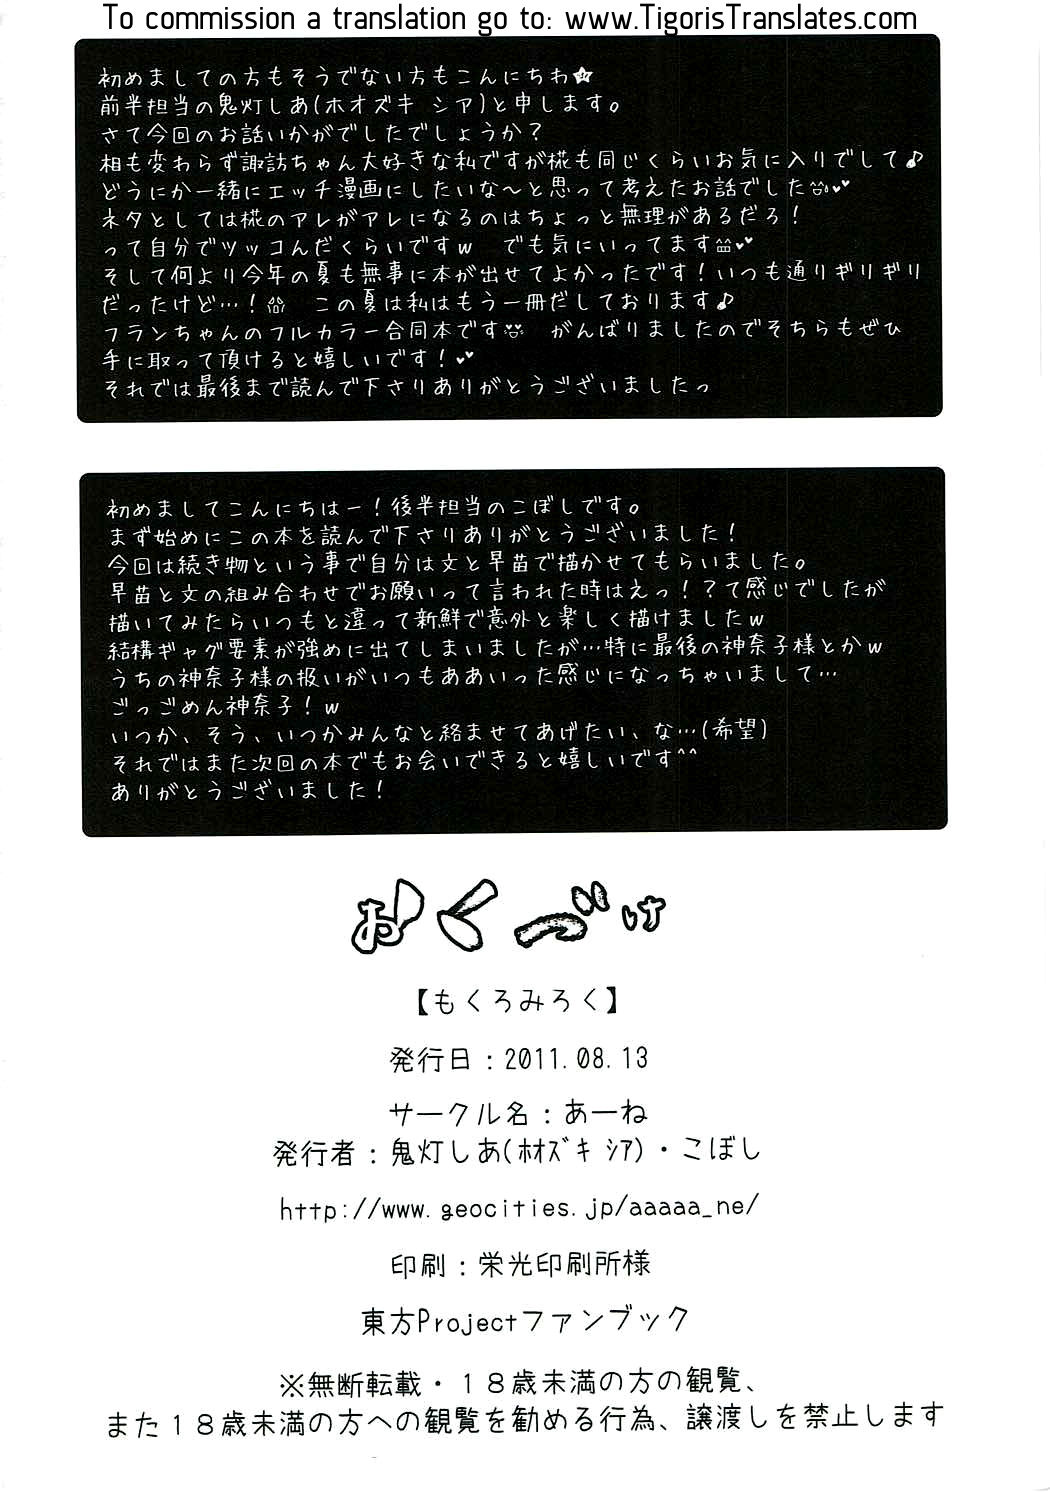 To commission a translation go to: www.TigorisTranslates.com
初めましての方もそうでない方もこんにちわ☆
前半担当の鬼灯しあ(ホオズキ シア)と申します。
さて今回のお話いかがでしたでしょうか？
相も変わらず諏訪ちゃん大好きな私ですが椛も同じくらいお気に入りでして♪
どうにか一緒にエッチ漫画にしたいな～と思って考えたお話でした
ネタとしては椛のアレがアレになるのはちょっと無理があるだろ！
って自分でツッコんだくらいですｗ　でも気にいってます
そして何より今年の夏も無事に本が出せてよかったです！いつも通りギリギリ
だったけど…！　この夏は私はもう一冊だしております♪
フランちゃんのフルカラー合同本です　がんばりましたのでそちらもぜひ
手に取って頂けると嬉しいです！
それでは最後まで読んで下さりありがとうございましたっ
初めましてこんにちはー！後半担当のこぼしです。
まず始めにこの本を読んで下さりありがとうございました！
今回は続き物という事で自分は文と早苗で描かせてもらいました。
早苗と文の組み合わせでお願いって言われた時はえっ！？て感じでしたが
描いてみたらいつもと違って新鮮で意外と楽しく描けましたｗ
結構ギャグ要素が強めに出てしまいましたが…特に最後の神奈子様とかｗ
うちの神奈子様の扱いがいつもああいった感じになっちゃいまして…
ごっごめん神奈子！ｗ
いつか、そう、いつかみんなと絡ませてあげたい、な…(希望)
それではまた次回の本でもお会いできると嬉しいです^^
ありがとうございました！
おくづけ
【もくろみろく】
発行日：2011.08.13
サークル名：あーね
発行者：鬼灯しあ(ﾎｵｽﾞｷ ｼｱ)・こぼし
http://www.geocities.jp/aaaaa_ne/
印刷：栄光印刷所様
東方Projectファンブック
※無断転載・１８歳未満の方の観覧、
また１８歳未満の方への観覧を勧める行為、譲渡しを禁止します